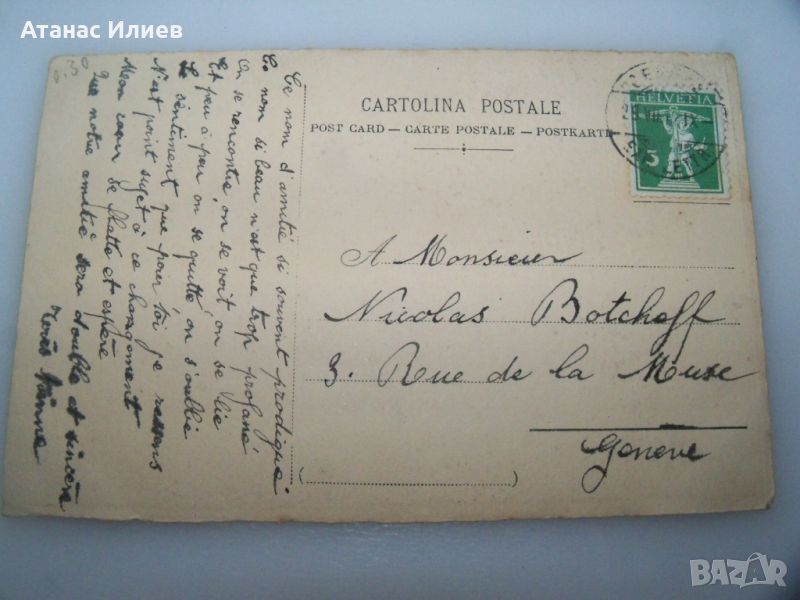 Атанас Илиев
0.30
Ce nom d'amitié si souvent prodigué
Ce nom si beau n'est que trop profané
On se rencontre, on se voit, on se lie
Et peu à peu on se quitte on s'oublie
Le sentiment que pour toi je ressens
N'est point sujet à ce changement
Mon cœur se flatte et espère
Que notre amitié sera durable et sincère
CARTOLINA POSTALE
POST CARD — CARTE POSTALE — POSTKARTE
HELVETIA
5
A Monsieur
Nicolas Botcheff
3. Rue de la Muse
Genève
BAZAR